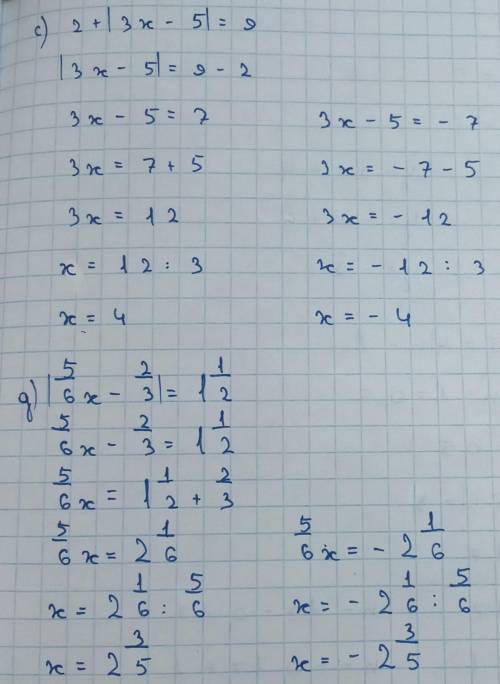 c) 2 + |3x - 5| = 9
|3x - 5| = 9 - 2
3x - 5 = 7
3x = 7 + 5
3x = 12
x = 12 : 3
x = 4
3x - 5 = - 7
3x = - 7 - 5
3x = - 12
x = - 12 : 3
x = - 4
g) |5/6 x - 2/3| = 1 1/2
5/6 x - 2/3 = 1 1/2
5/6 x = 1 1/2 + 2/3
5/6 x = 2 1/6
x = 2 1/6 : 5/6
x = 2 3/5
5/6 x = - 2 1/6
x = - 2 1/6 : 5/6
x = - 2 3/5